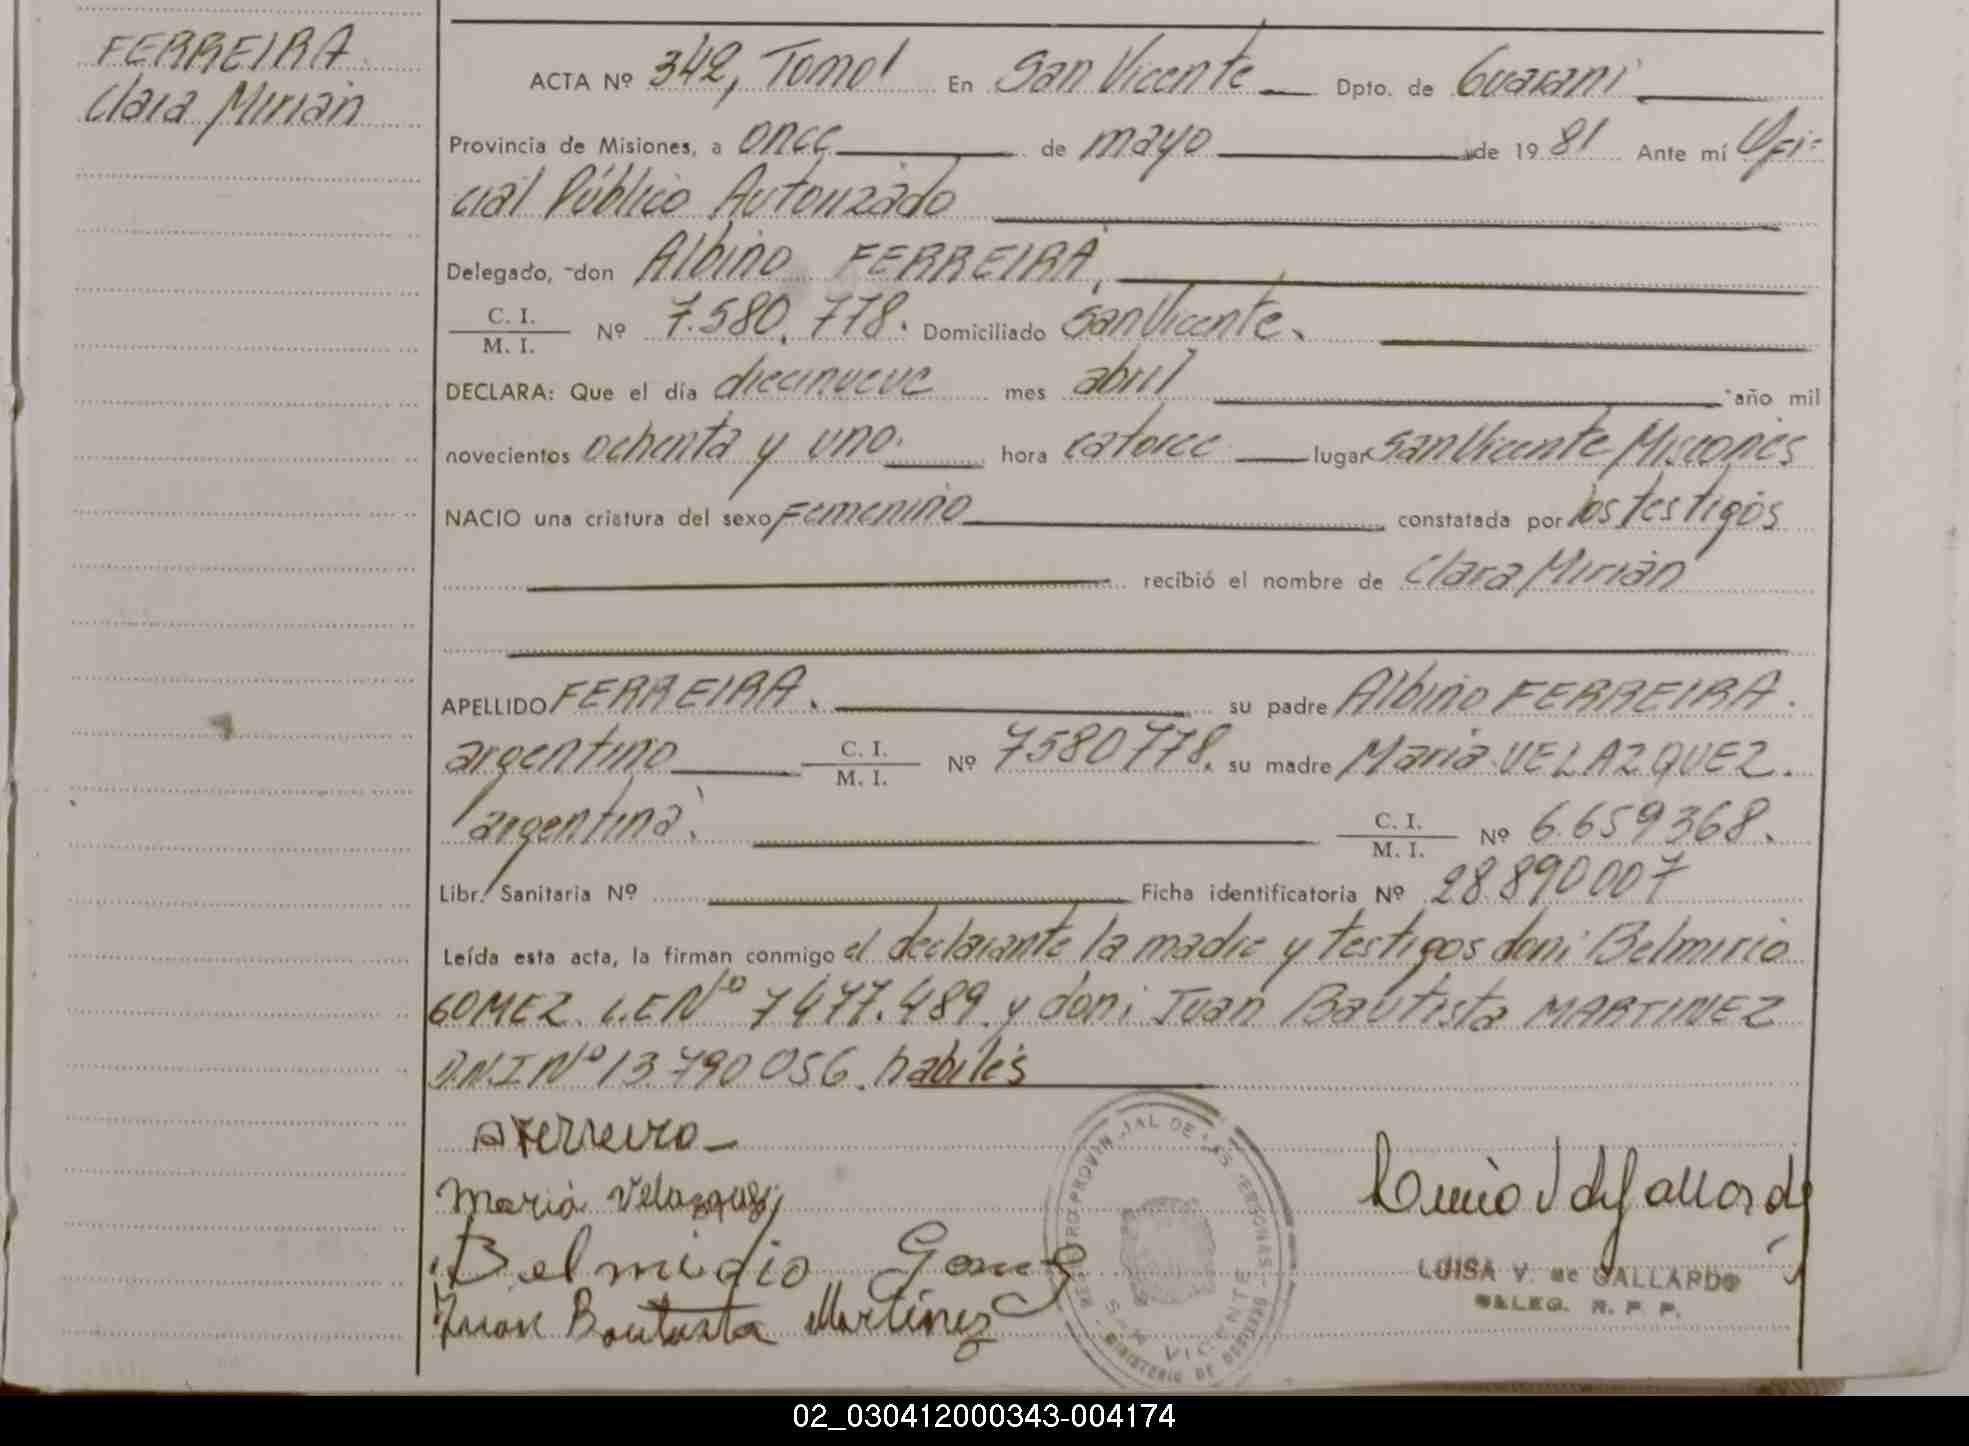 FERREIRA
Clara Mirian
ACTA Nº 342, Tomo I En San Vicente Dpto. de Guarani
Provincia de Misiones, a once de mayo de 1981 Ante mí Ofi-
cial Público Autorizado
Delegado, don Albino FERREIRA,
C. I.
M. I. Nº 7.580.778. Domiciliado San Vicente.
DECLARA: Que el día diecinueve mes abril año mil
novecientos ochenta y uno. hora catorce lugar San Vicente Misiones
NACIO una criatura del sexo Femenino constatada por los testigos
recibió el nombre de Clara Mirian
APELLIDO FERREIRA. su padre Albino FERREIRA.
argentino C. I. M. I. Nº 7580778. su madre Maria VELAZQUEZ.
argentina. C. I. M. I. Nº 6.659368.
Libr. Sanitaria Nº Ficha identificatoria Nº 28.890007
Leída esta acta, la firman conmigo el declarante la madre y testigos don: Belmirio
GOMEZ. L.E Nº 7477.489. y don: Juan Bautista MARTINEZ
D.N.I Nº 13.790056. habiles
A Ferreira
Maria Velazquez
Belmidio Gomez
Juan Bautista Martinez
REGISTRO PROVINCIAL DE LAS PERSONAS
SAN VICENTE
MINISTERIO DE GOBIERNO
LUISA V. de GALLARDO
DELEG. R. P. P.
02_030412000343-004174